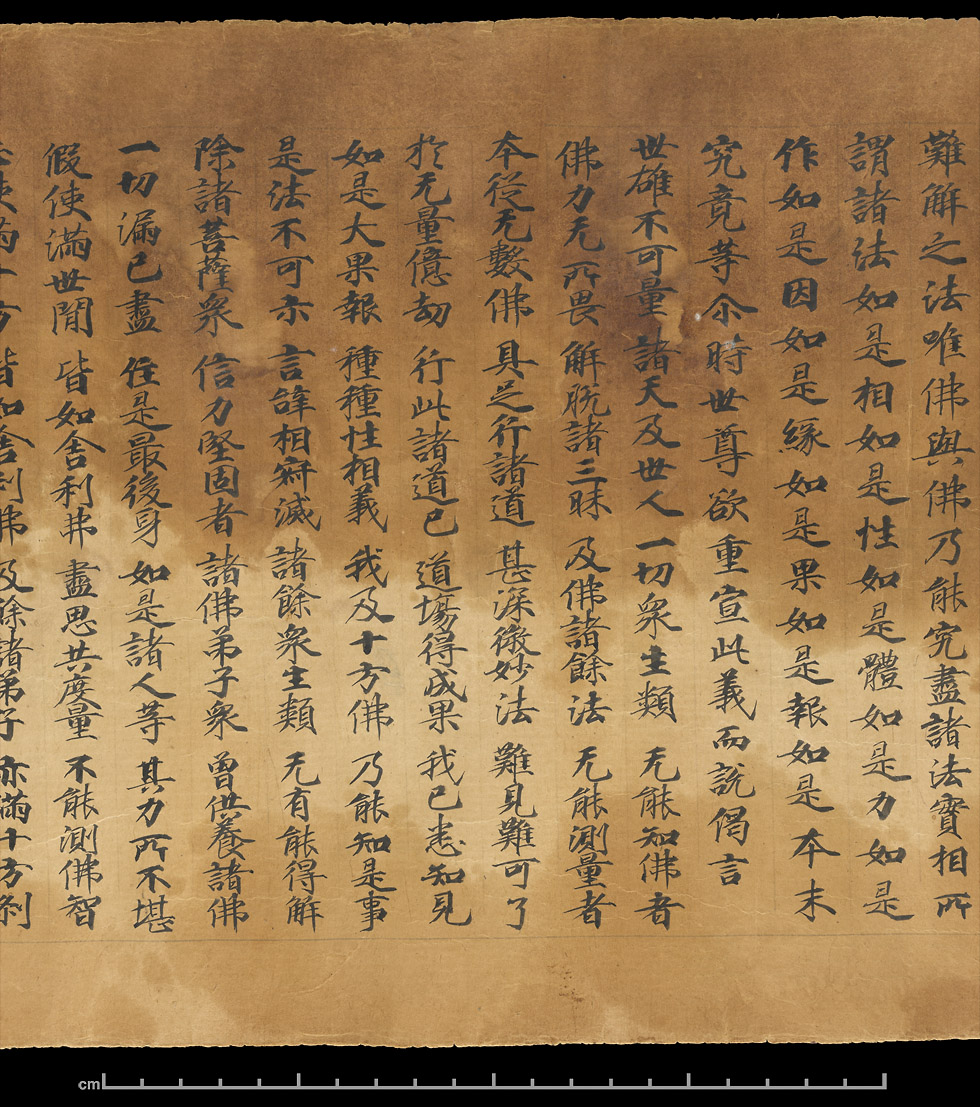 難解之法唯佛與佛乃能究盡諸法實相所
謂諸法如是相如是性如是體如是力如是
作如是因如是緣如是果如是報如是本末
究竟等尒時世尊欲重宣此義而說偈言
世雄不可量 諸天及世人 一切衆生類 无能知佛者
佛力无所畏 解脫諸三昧 及佛諸餘法 无能測量者
夲從无數佛 具足行諸道 甚深微妙法 難見難可了
於无量億劫 行此諸道已 道場得成果 我已悉知見
如是大果報 種種性相義 我及十方佛 乃能知是事
是法不可示 言辞相寂滅 諸餘衆生類 无有能得解
除諸菩薩衆 信力堅固者 諸佛弟子衆 曾供養諸佛
一切漏已盡 住是最後身 如是諸人等 其力所不堪
假使滿世間 皆如舍利弗 盡思共度量 不能測佛智
使滿十方 皆如舍利弗 及餘諸弟子 亦滿十方刹
cm